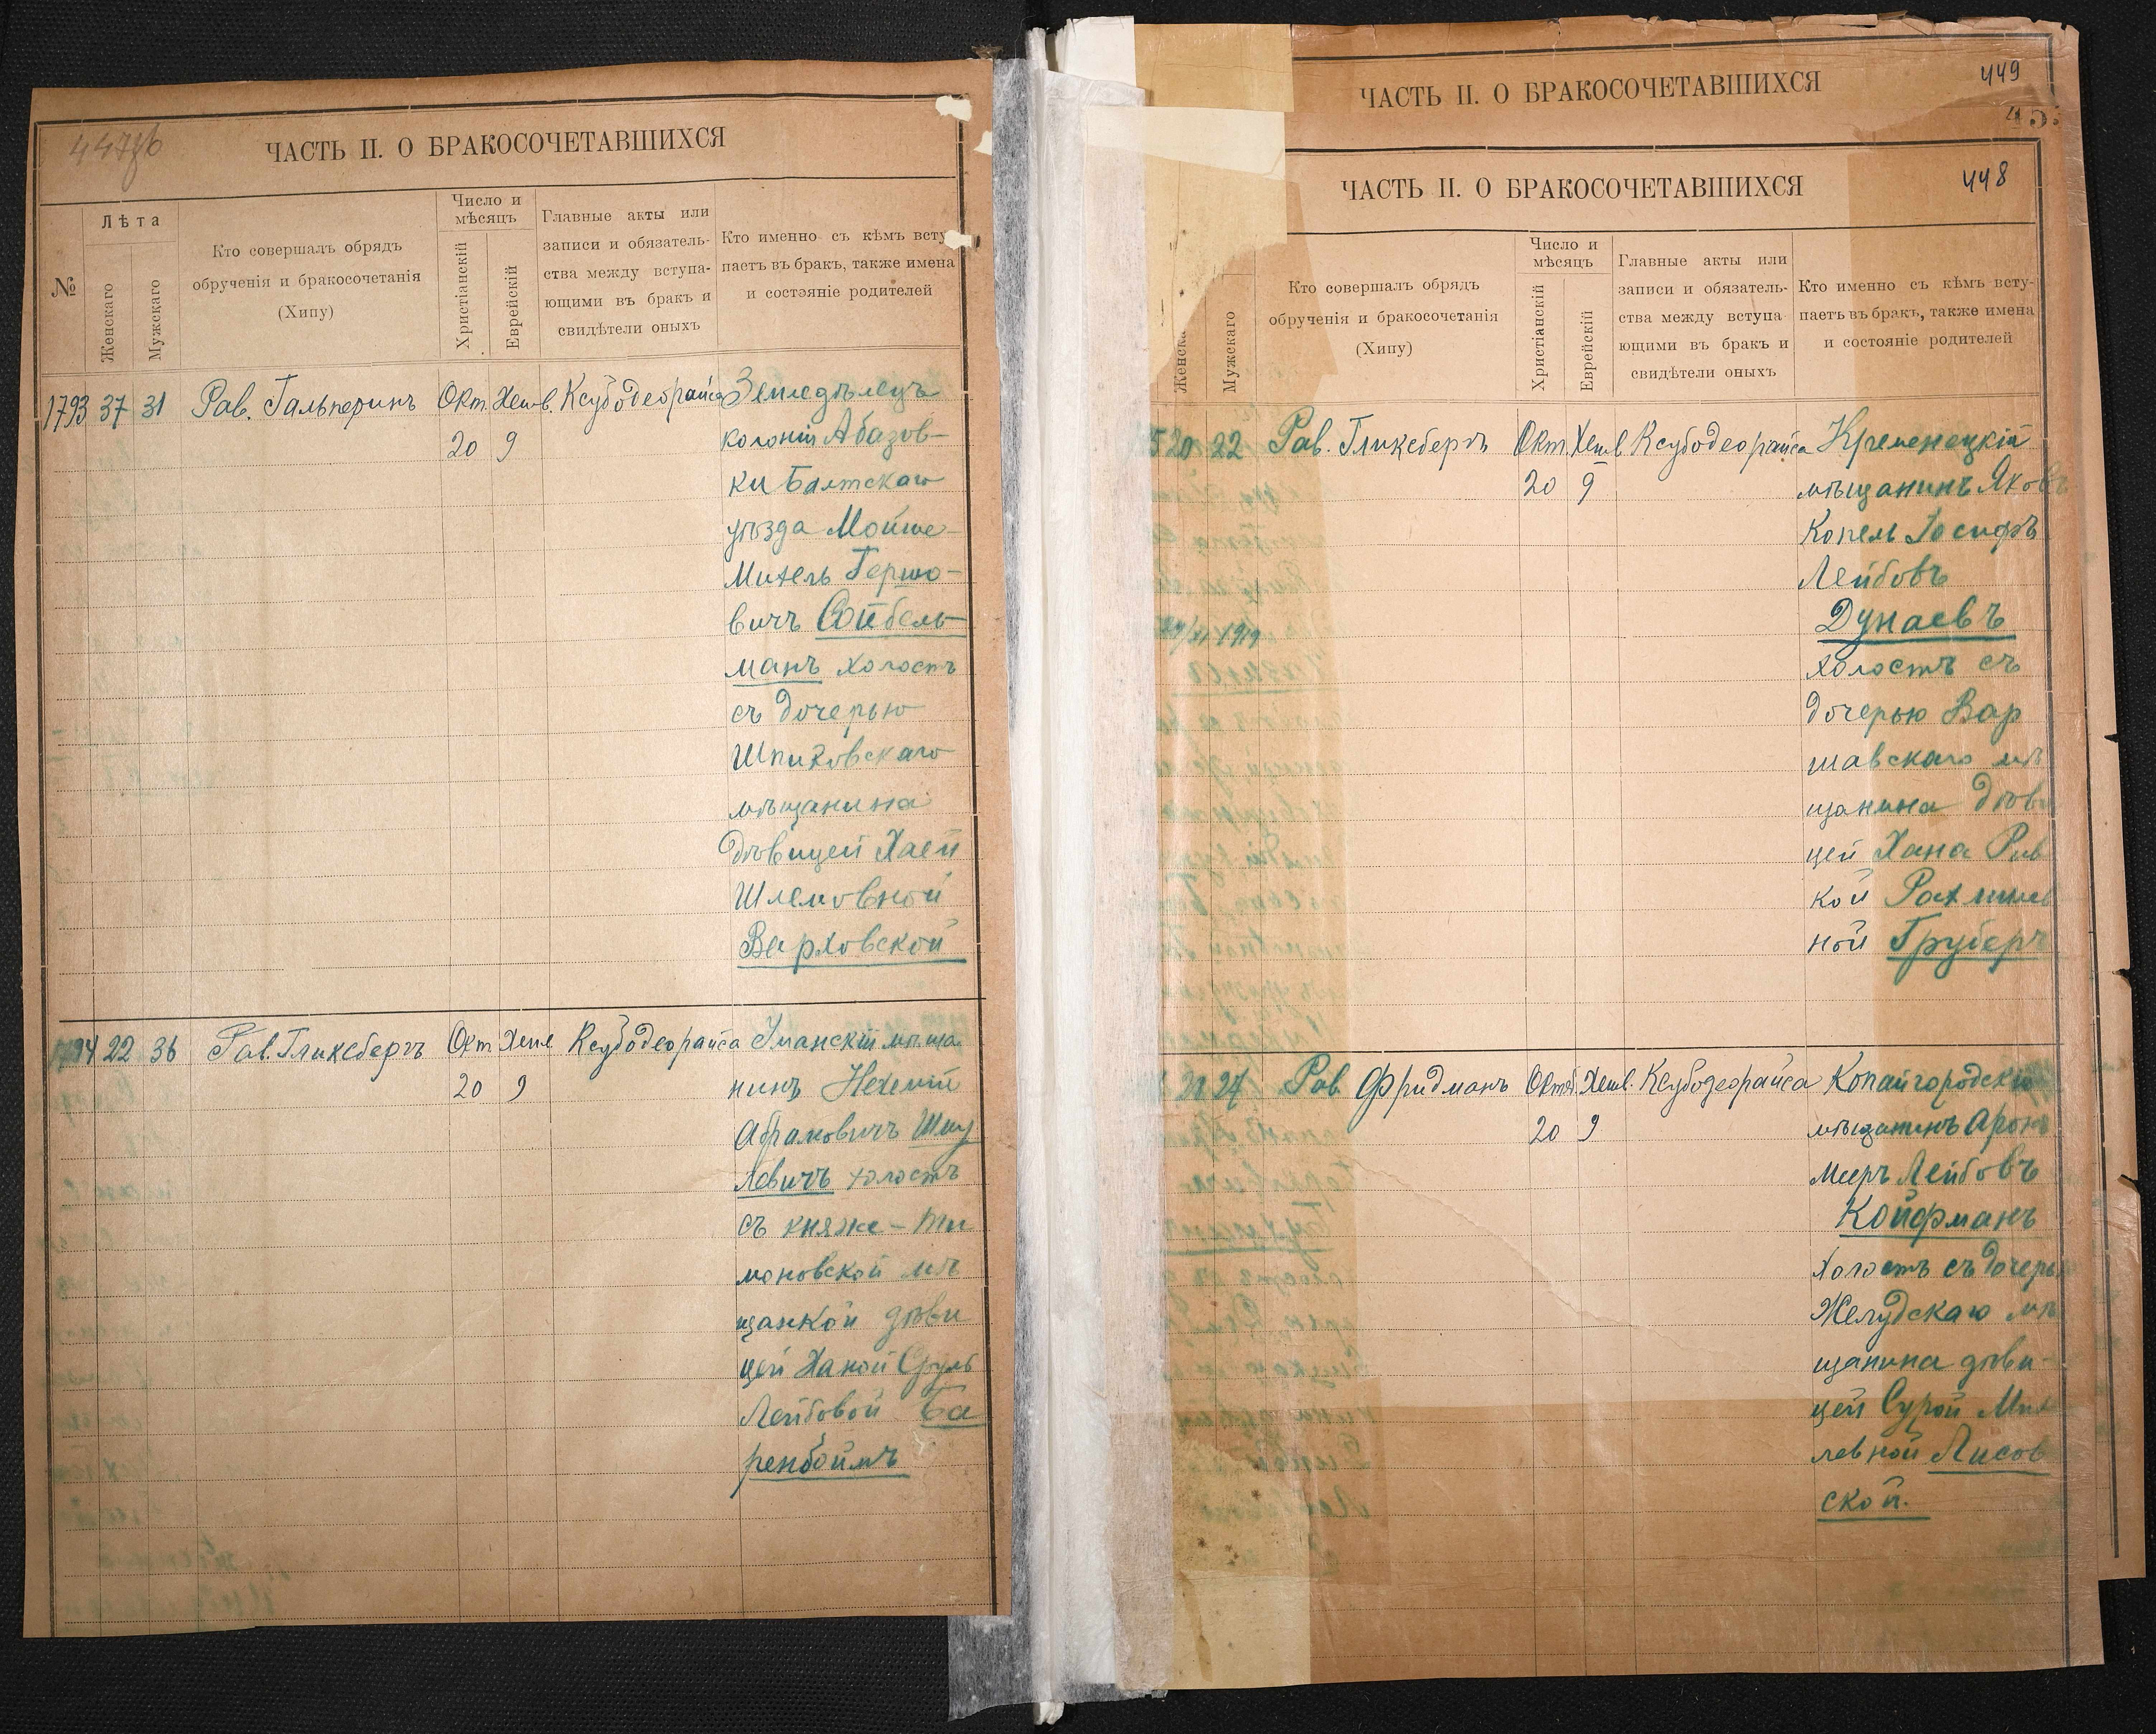 447об
ЧАСТЬ II. О БРАКОСОЧЕТАВШИХСЯ
№
Лѣта
Женскаго
Мужскаго
Кто совершалъ обрядъ
обрученія и бракосочетанія
(Хипу)
Число и
мѣсяцъ
Христіанскій
Еврейскій
Главные акты или
записи и обязатель-
ства между вступа-
ющими въ бракъ и
свидѣтели оныхъ
Кто именно съ кѣмъ всту
паетъ въ бракъ, также имена
и состояніе родителей
1793 37 31 Рав. Гальперинъ Окт. Хешв. Ксубодеорайса Земледѣлецъ
20 9 колоніи Абазов-
ки Балтскаго
уѣзда Мойше-
Михель Гершо-
вичъ Сойбель-
манъ холостъ
съ дочерью
Шпиковскаго
мѣщанина
дѣвицей Хаей
Шлемовной
Верховской
1794 22 36 Рав. Гликсбергъ Окт. Хешв Ксубодеорайса Уманскій мѣща
20 9 нинъ Нехемій
Абрамовичъ Шму
левичъ холостъ
съ княже-Ти
моновской мѣ
щанкой дѣви
цей Ханой Сруль
Лейбовой Ба
ренбоймъ
ЧАСТЬ II. О БРАКОСОЧЕТАВШИХСЯ
449
45
ЧАСТЬ II. О БРАКОСОЧЕТАВШИХСЯ
448
Женска
Мужскаго
Кто совершалъ обрядъ
обрученія и бракосочетанія
(Хипу)
Число и
мѣсяцъ
Христіанскій
Еврейскій
Главные акты или
записи и обязатель-
ства между вступа
ющими въ бракъ и
свидѣтели оныхъ
Кто именно съ кѣмъ всту-
паетъ въ бракъ, также имена
и состояніе родителей
5 20 22 Рав. Гликсбергъ Окт. Хешв Ксубодеорайса Кременецкій
20 9 мѣщанинъ Яковъ
Копель Іосифъ
Лейбовъ
Дунаевъ
холостъ съ
дочерью Вар
шавскаго мѣ
щанина дѣви
цей Хана Рив
кой Рахмилев
ной Груберъ
1919
24 Рав Фридманъ Октяб. Хешв. Ксубодеорайса Копайгородскій
20 9 мѣщанинъ Аронъ
Мееръ Лейбовъ
Койфманъ
холостъ съ дочерью
Желудскаго мѣ
щанина дѣви-
цей Сурой Мих
левной Лисов
ской.